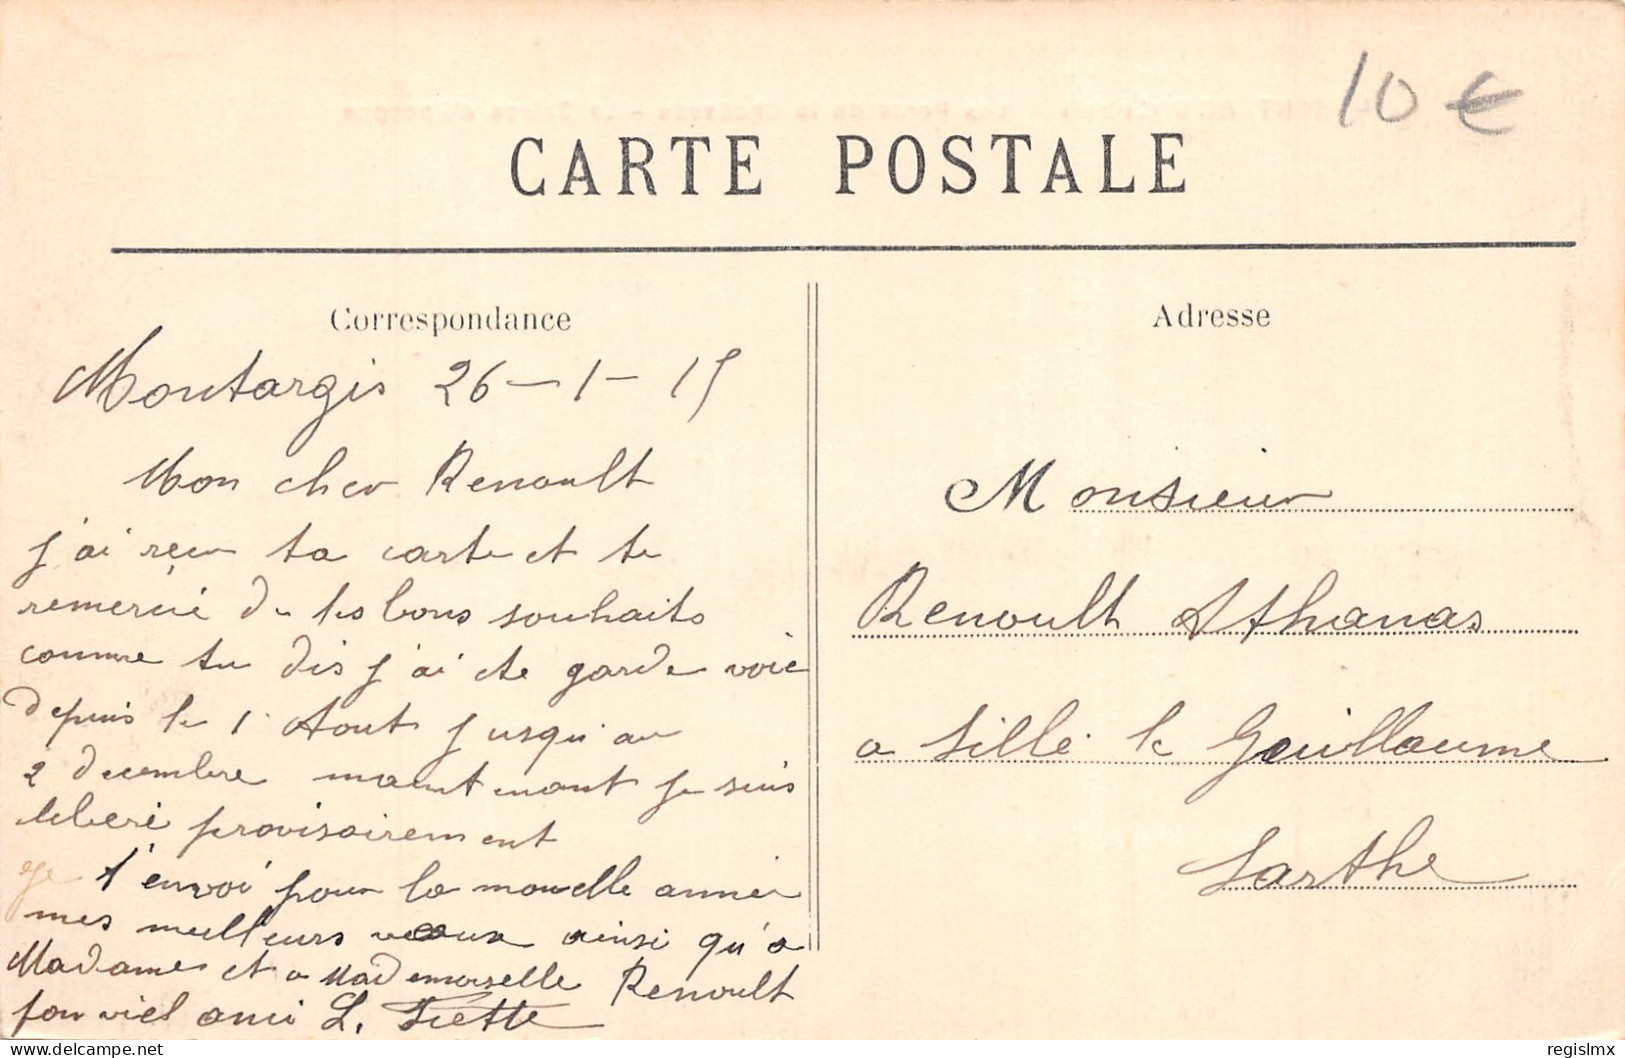 10 €
CARTE POSTALE
Correspondance
Montargis 26 - 1 - 15
Mon cher Renoult
j'ai reçu ta carte et te
remercie de tes bons souhaits
comme tu dis j'ai éte garde voie
depuis le 1 Aout jusqu'au
2 decembre maint enant je suis
libéré provisoirement
je t'envoi pour la nouvelle année
mes meilleurs veaux ainsi qu'a
Madame et a Mademoiselle Renoult
ton viel ami L.
Adresse
Monsieur
Renoult Athanas
a Sillé le Guillaume
Sarthe
regislmx
delcampe.net